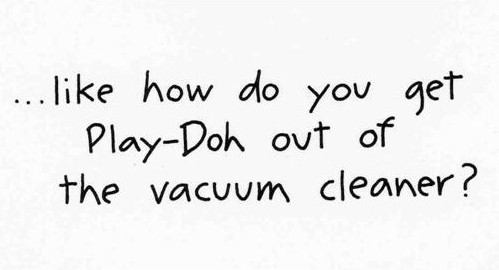 ...like how do you get
Play-Doh out of
the vacuum cleaner?